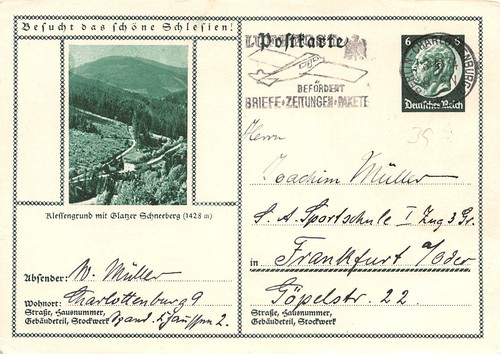 Besucht das schöne Schlesien!
Klessengrund mit Glatzer Schneeberg (1428 m)
Absender: W. Müller
Wohnort: Charlottenburg 9
Straße, Hausnummer,
Gebäudeteil, Stockwerk 2.
Postkarte
LUFTPOST
BEFÖRDERT
BRIEFE·ZEITUNGEN·PAKETE
6 6
Deutsches Reich
Herrn
Joachim Müller
S. A. Sportschule I Zug 3 Gr.
in Frankfurt a/Oder
Göpelstr. 22.
Straße, Hausnummer,
Gebäudeteil, Stockwerk